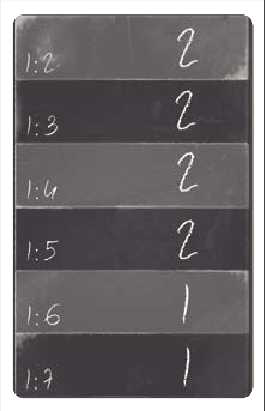 1:2 2
1:3 2
1:4 2
1:5 2
1:6 1
1:7 1